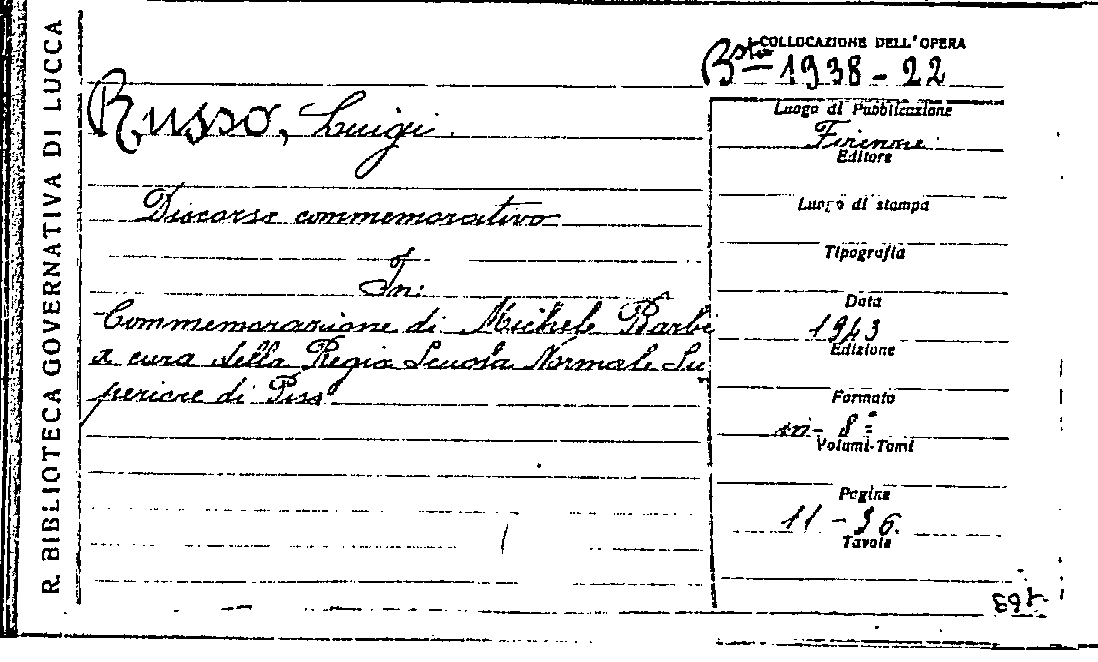 R. BIBLIOTECA GOVERNATIVA DI LUCCA
COLLOCAZIONE DELL'OPERA
Bsta 1938-22
Russo, Luigi.
Discorso commemorativo
In:
Commemorazione di Michele Barbi
a cura della Regia Scuola Normale Su
periore di Pisa
Luogo di Pubblicazione
Firenze
Editore
Luogo di stampa
Tipografia
Data
1943
Edizione
Formato
in-8°
Volumi-Tomi
Pagine
11-36.
Tavole
163